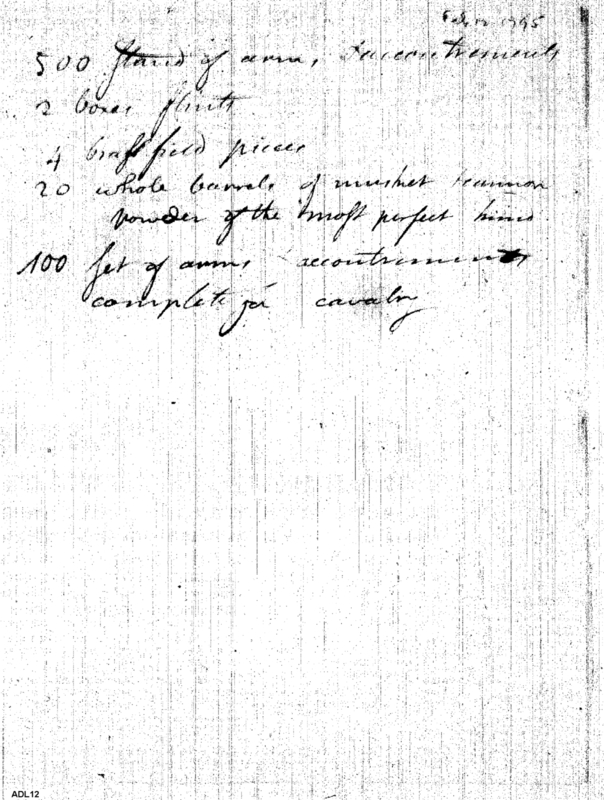 Feby 12 1795
500 stand of arms, & accoutrements
2 boxes flints
4 brass field pieces
20 whole barrels of musket & cannon
powder of the most perfect kind
100 set of arms & accoutrements
complete for cavalry
ADL12